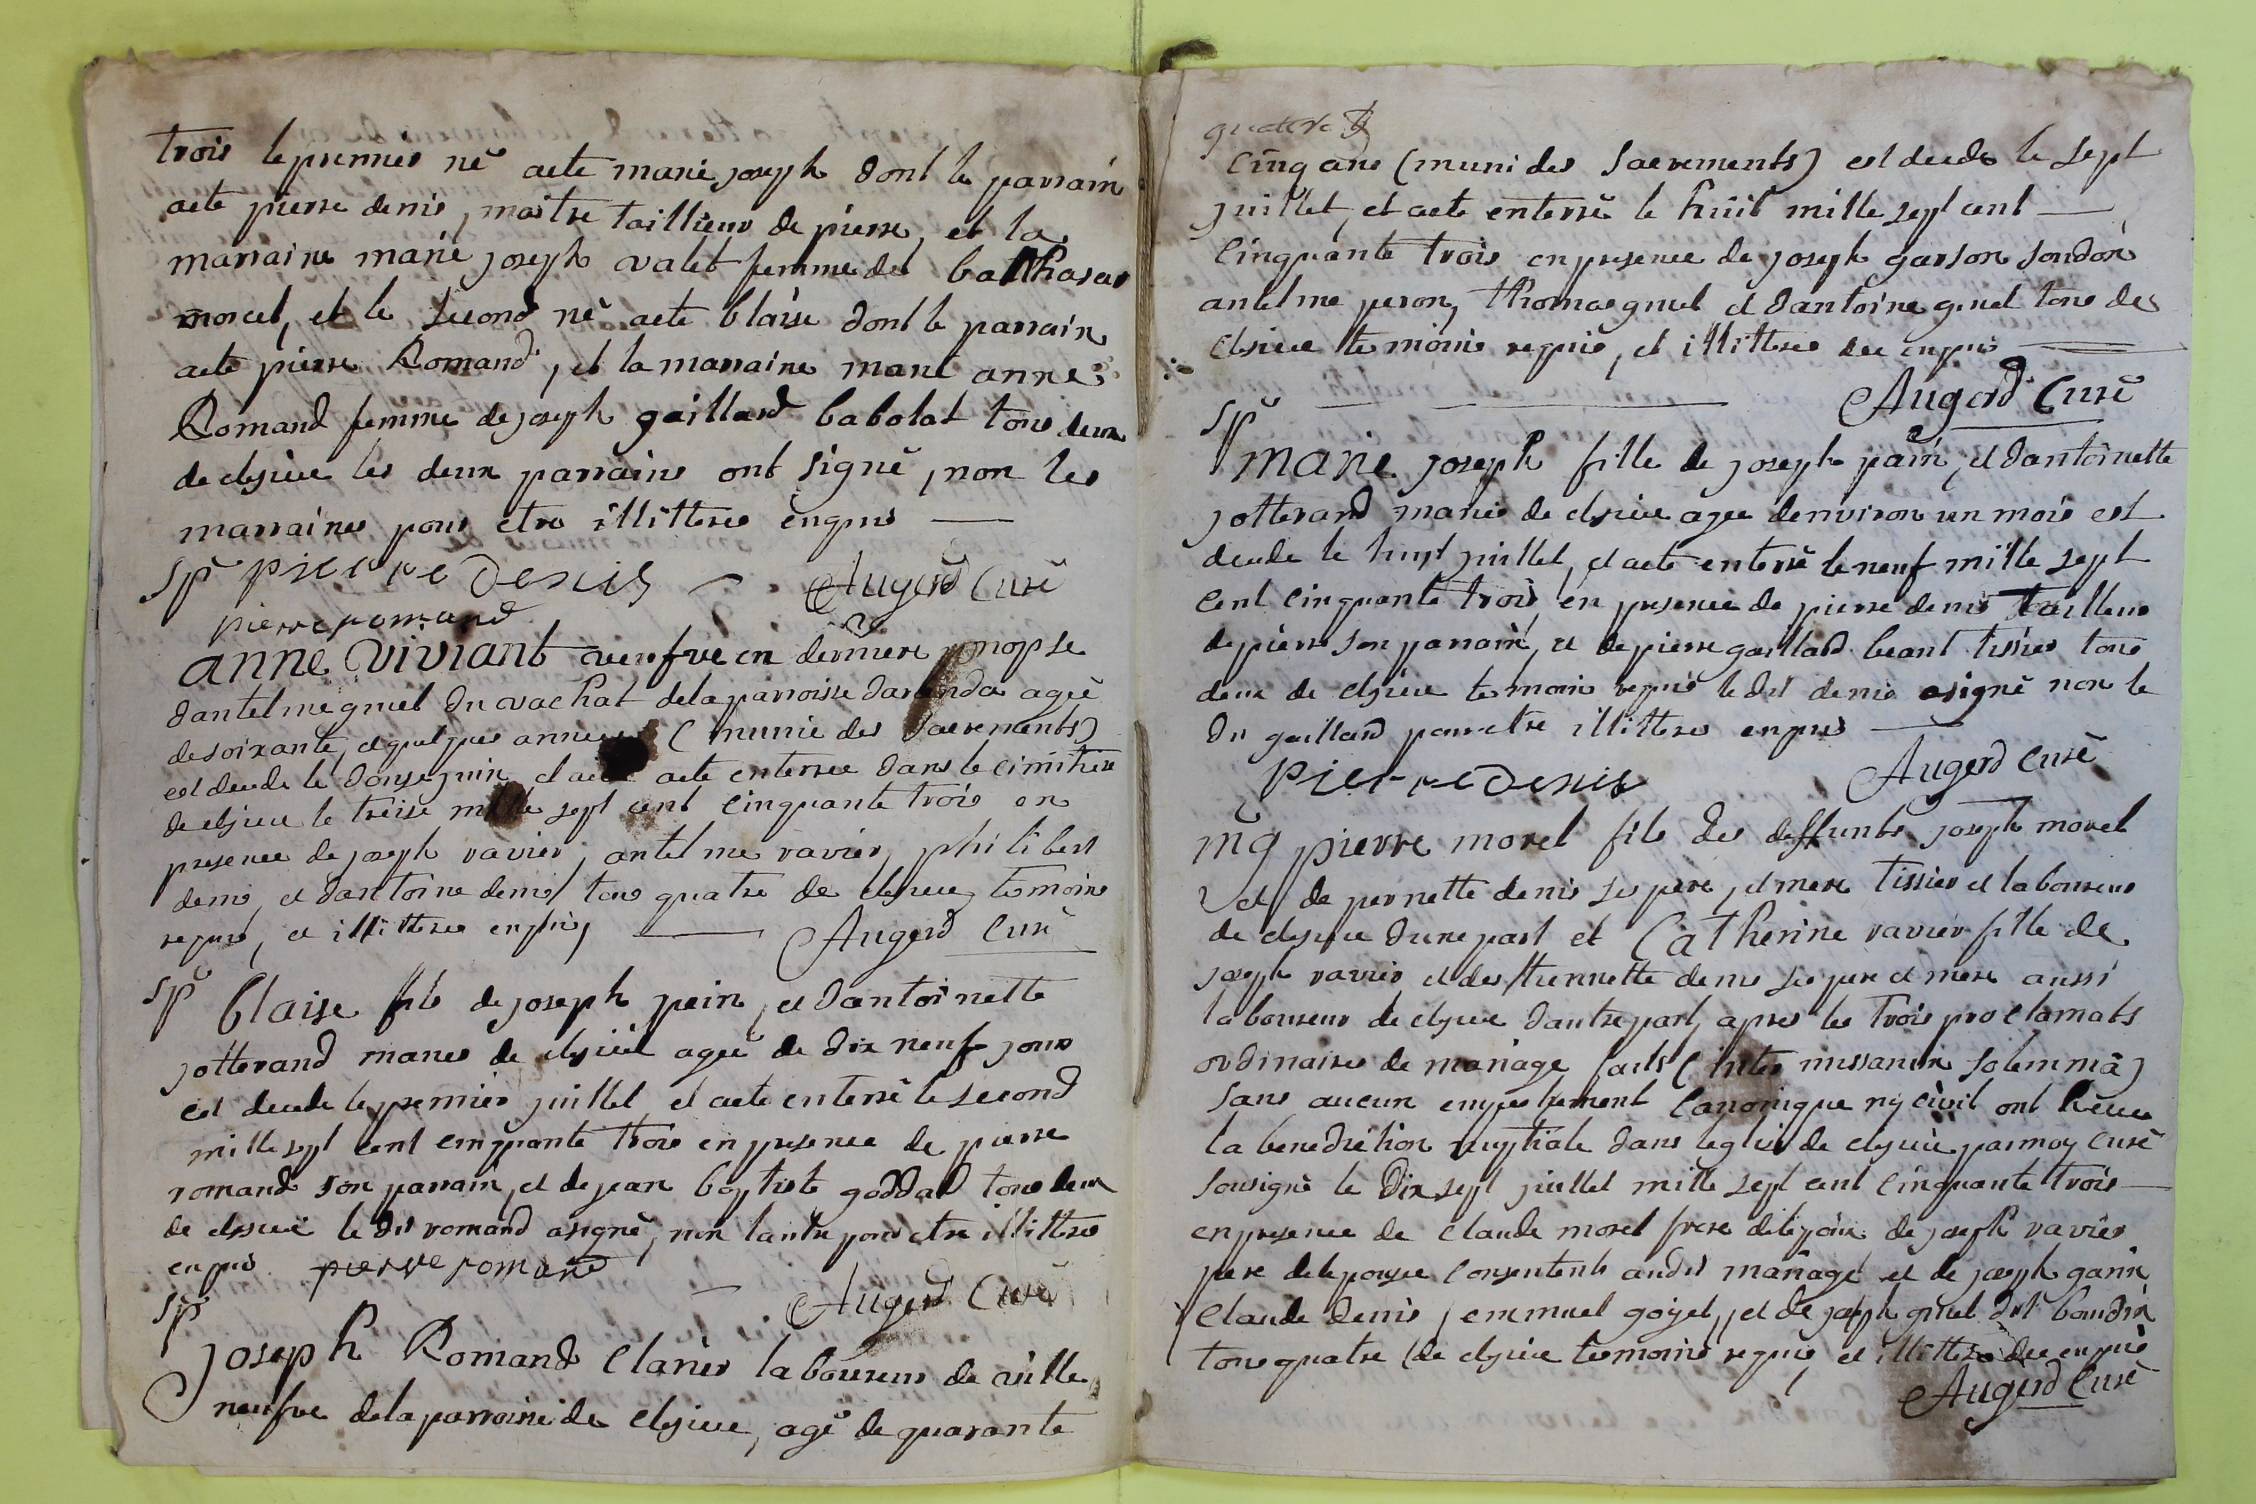 trois le premier né aeté marie joseph dont le parrain
aeté pierre denis, maitre taillieur de pierre, et la
marraine marie joseph valet femme de balthasar
morcel, et le second né aeté blaise dont le parrain
aeté pierre Romand, et la marraine marie anne
Romand femme de joseph gaillard babolat tous deux
de clsieu les deux parrains ont signé, non les
marraines pour etre illitteres enquis
Sp pierre Denis Augerd Curé
pierre romand
anne viviant veufve en derniere
dantelme gruel du vachat de la parroisse agée
de soixante, et quelques années (munie des Sacrements)
est decede le douse juin et aeté enterree dans le cimitiere
de clsieu le treise mille sept cent cinquante trois en
presence de joseph ravier, antelme ravier, philibert
denis, et dantoine denis, tous quatre de clsieu temoins
requis, et illitteres enquis Augerd Curé
Sp blaise fils de joseph pein, et dantoinette
jotterand mariés de clsieu agée de dix neuf jours
est decede le premier juillet, et aeté enterré le second
mille sept cent cinquante trois en presence de pierre
romand son parrain, et de jean baptiste goddad tous deux
de clsieu le dit romand asigné, non lautre pour etre illittere
enquis pierre romand
Sp Augerd Curé
joseph Romand Clarier laboureur de ville
neufve de la parroisse de clsieu, agé de quarante
quatre
cinq ans (muni des Sacrements) est decede le sept
juillet, et aeté enterré le huit mille sept cent
cinquante trois en presence de joseph garson
antelme peron, thomas gruel et dantoine gruel tous de
clsieu temoins requis, et illitteres enquis
Augerd Curé
Sp marie joseph fille de joseph pain, et dantoinette
jotterand mariés de clsieu agée denviron un mois est
decede le huit juillet, et aeté enterré le neuf mille sept
cent cinquante trois, en presence de pierre denis Tailleur
de pierre son parrain, et de pierre gaillard tissier tous
deux de clsieu temoins requis le dit denis asigné non le
du gaillard pour etre illittere enquis
pierre Denis Augerd Curé
mg pierre morel fils des deffunts joseph morel
et de pernette denis ses pere, et mere tissier et laboureur
de clsieu dune part et Catherine ravier fille de
joseph ravier, et desthiennette denis ses pere et mere aussi
laboureur de clsieu dautre part, apres les trois proclamats
ordinaires de mariage faits (inter missarum solemnia)
sans aucun empechement canonique ny civil ont
la benediction nuptiale dans leglise de clsieu par moy curé
sousigné le dix sept juillet mille sept cent cinquante trois
en presence de claude morel frere de lepoux de joseph ravier
pere de lepouse consentents audit mariage et de joseph garin
claude denis, emmuel gojet, et de joseph gruel dit baudin
tous quatre de clsieu temoins requis, et illitteres enquis
Augerd Curé